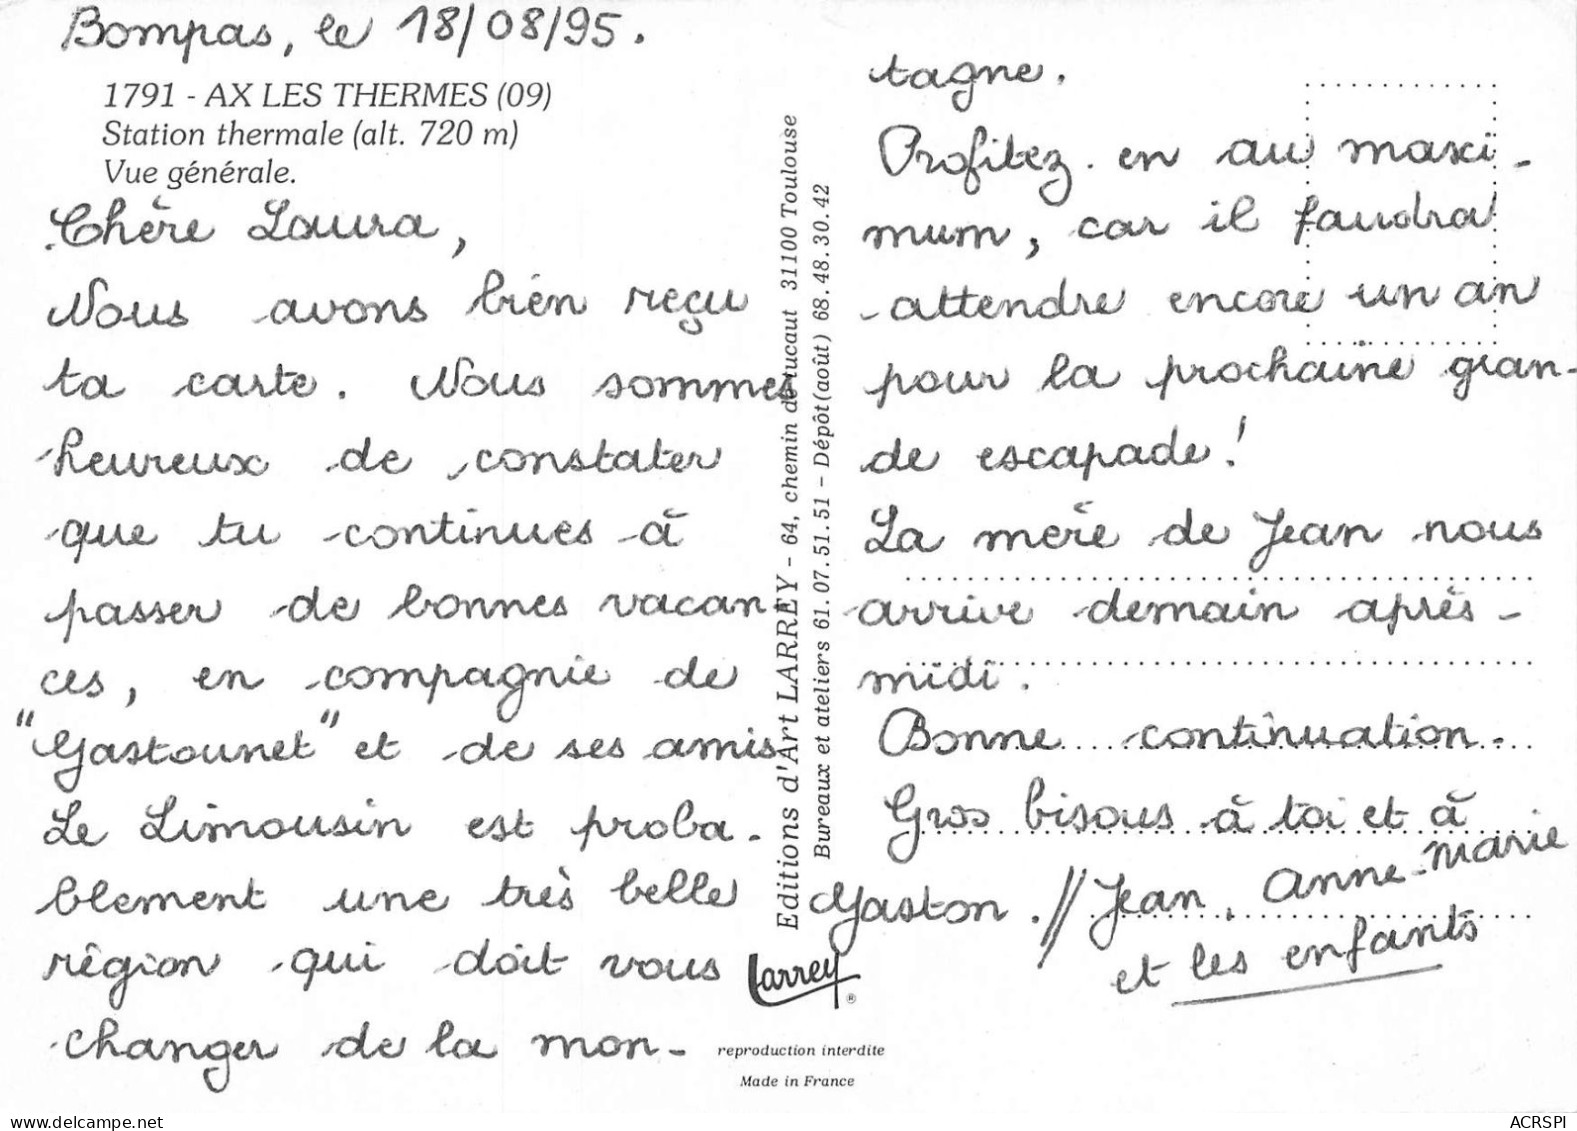 Bompas, le 18/08/95.
1791 - AX LES THERMES (09)
Station thermale (alt. 720 m)
Vue générale.
Chère Laura,
Nous avons bien reçu
ta carte. Nous sommes
heureux de constater
que tu continues à
passer de bonnes vacan-
ces, en compagnie de
"Gastounet" et de ses amis
Le Limousin est proba-
blement une très belle
région qui doit vous
changer de la mon-
Editions d'Art LARREY - 64, chemin de tucaut 31100 Toulouse
Bureaux et ateliers 61.07.51.51 – Dépôt (août) 68.48.30.42
Larrey ®
reproduction interdite
Made in France
tagne.
Profitez-en au maxi-
mum, car il faudra
attendre encore un an
pour la prochaine gran-
de escapade!
La mère de Jean nous
arrive demain après-
midi.
Bonne continuation.
Gros bisous à toi et à
Gaston. // Jean, Anne-Marie
et les enfants
ACRSPI